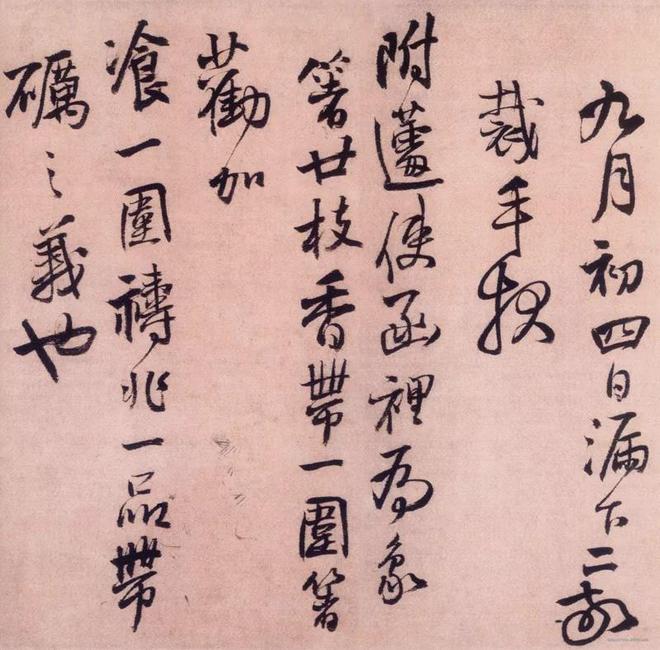 九月初四日漏下二刻
裁手
附使函裡為象
箸廿枝香帶一圍箸
勸加
飡一圍禱兆一品帶
礪之義也